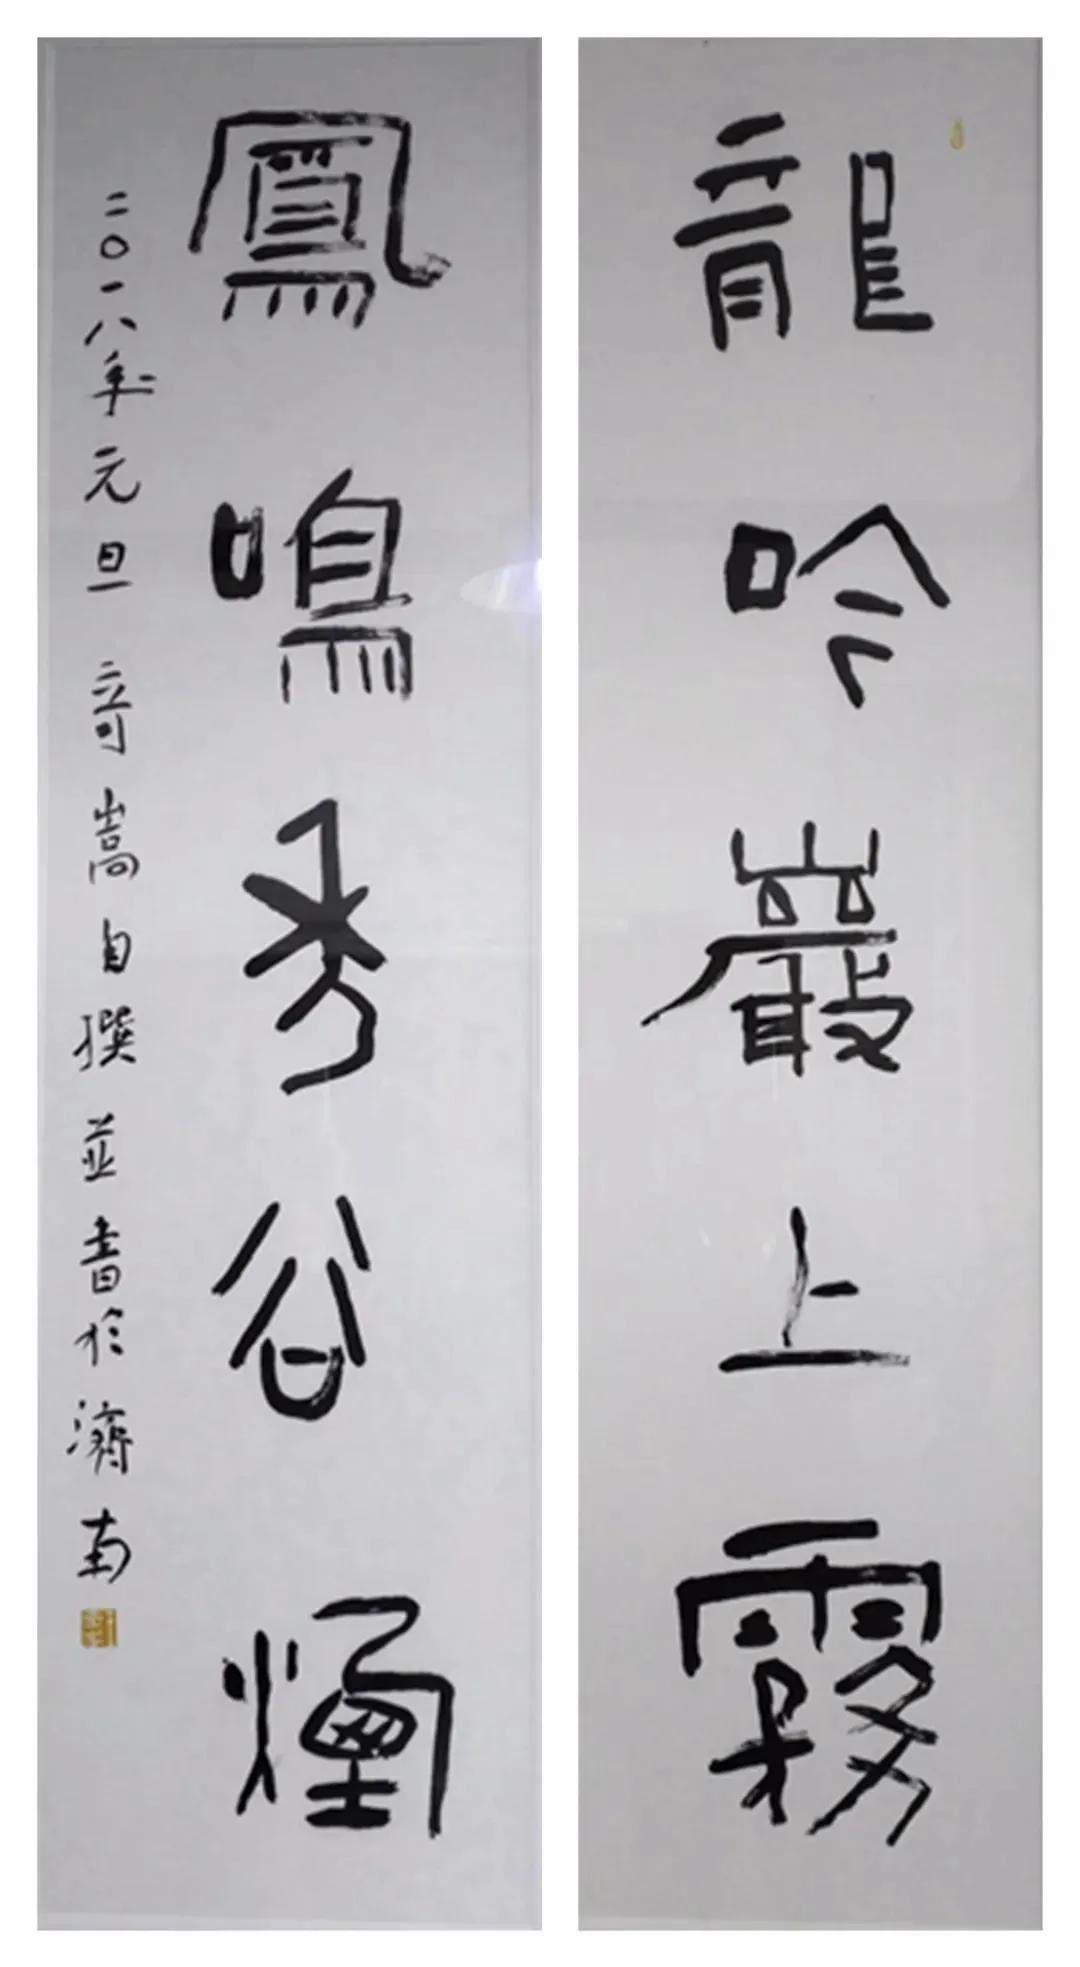 龍吟巖上霧
鳳鳴秀谷煙
二〇一八年元旦 奇嵩自撰並書於濟南